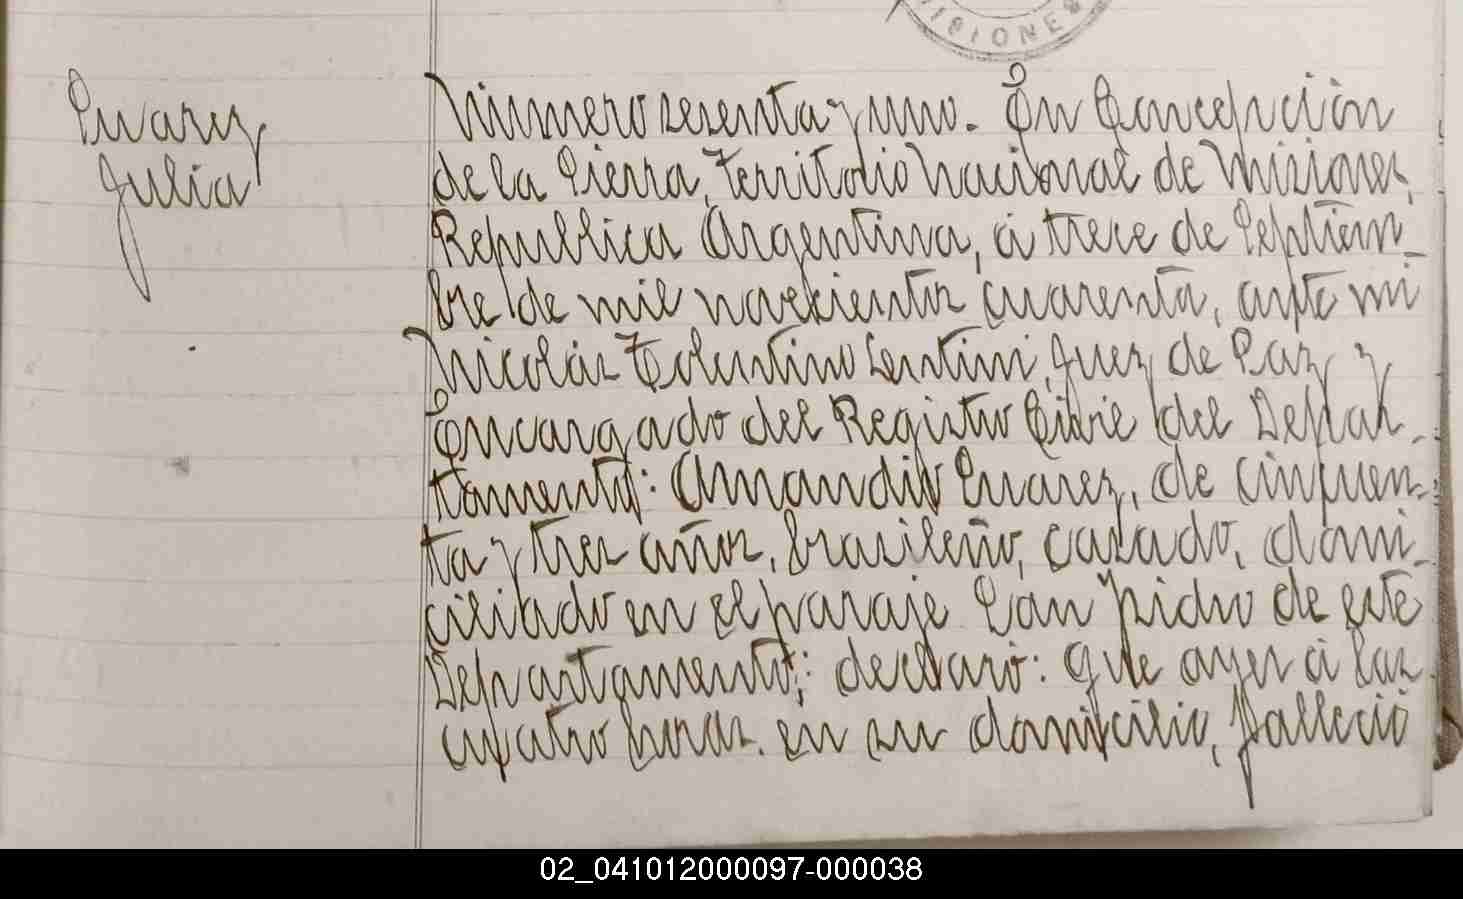 MISIONES
Suarez
Julia
Número sesenta y uno. En Concepción
de la Sierra, Territorio Nacional de Misiones,
Republica Argentina, á trece de Septiem_
bre de mil novecientos cuarenta, ante mi
Nicolás Tolentino Lentini, Juez de Paz y
Encargado del Registro Civil del Depar_
tamento: Amandio Suarez, de cincuen_
ta y tres años, brasileño, casado, domi_
ciliado en el paraje San Isidro de este
Departamento; declaró: Que ayer á las
cuatro horas en su domicilio, falleció
02_041012000097-000038